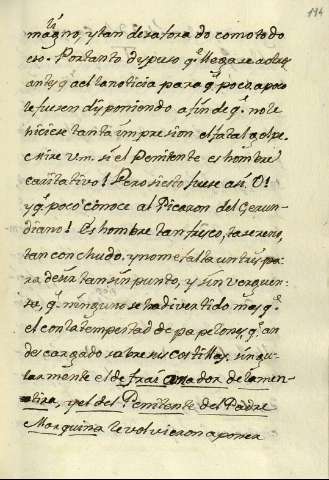 194
magno, y tan desaforado como todo
eso. Portanto dispuso q.e llegase a dar
antes q.e a el la noticia para q.e poco, a poco
le fuesen disponiendo a fin de q.e no le
hiciese tanta impresion el fatal golpe.
Mire Vm. si el Penitente es hombre
caritativo! Pero si esto fuese asi. O!
y q.e poco conoce al Picaron del Gerun-
diano! Es hombre tan fresco, ta sereno,
tan conchudo, y no me falta un tris pa-
ra desir tan sin punto, y sin verguen-
sa, q.e ninguno se ha divertido mas q.e
el con la tempestad de papelones q.e an
descargado sobre sus costillas, singu-
larmente el de frai Amador de la men-
tira, y el del Penitente del Padre
Marquina le volvieron a poner